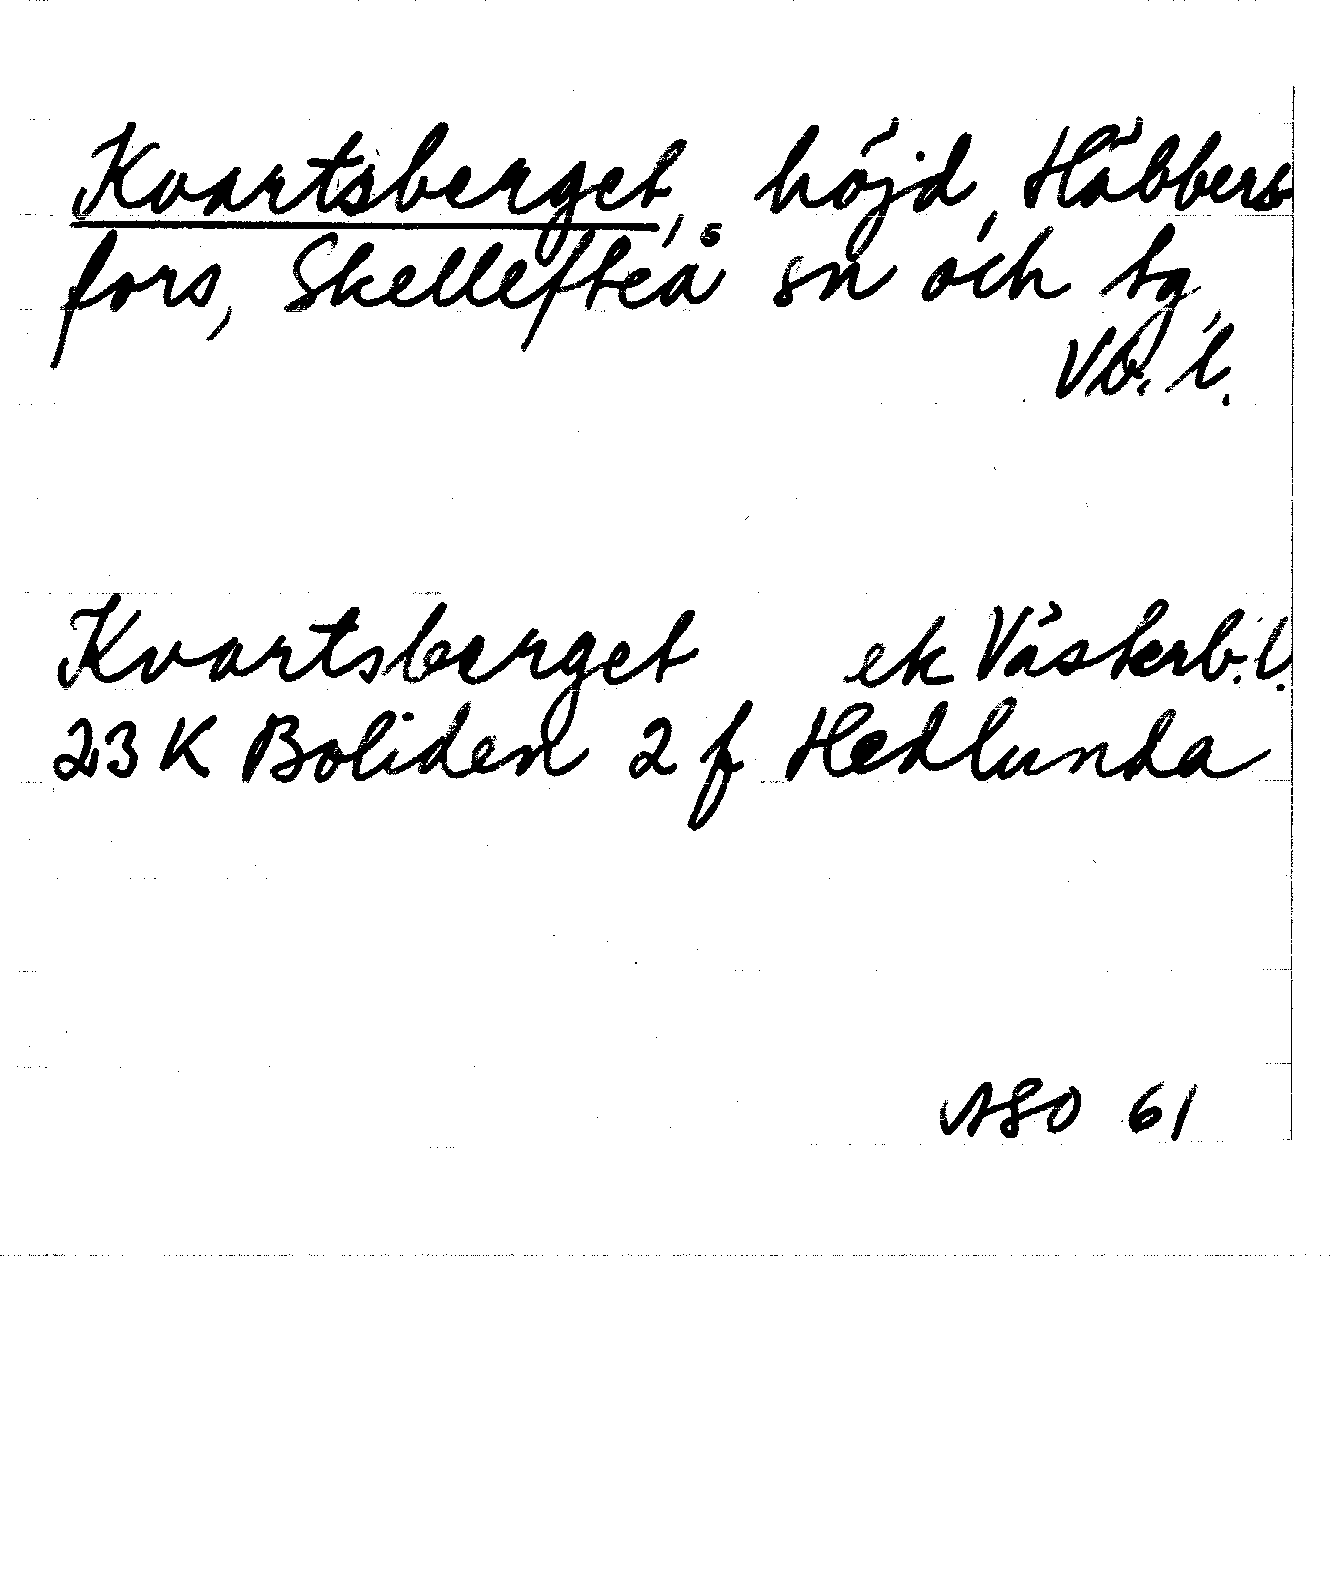 Kvartsberget, höjd, Häbbers
fors, Skellefteå sn och tg,
Vb. l.
Kvartsberget ek Västerb. l.
23 K Boliden 2 f Hedlunda
ASO 61